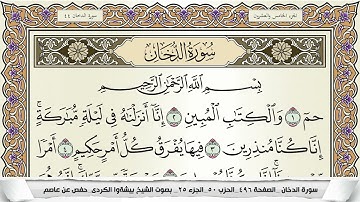 الجزء الخامس والعشرون
سورة الدخان ٤٤
سُورَةُ الدُّخَانِ
بِسْمِ اللَّهِ الرَّحْمَٰنِ الرَّحِيمِ
حمٓ ١ وَالْكِتَابِ الْمُبِينِ ٢ إِنَّآ أَنزَلْنَاهُ فِى لَيْلَةٍ مُّبَارَكَةٍ ۚ
إِنَّا كُنَّا مُنذِرِينَ ٣ فِيهَا يُفْرَقُ كُلُّ أَمْرٍ حَكِيمٍ ٤ أَمْرًا
سورة الدخان _ الصفحة ٤٩٦ _ الحزب ٥٠ _ الجزء ٢٥ _ بصوت الشيخ بيشةوا الكردي _ حفص عن عاصم